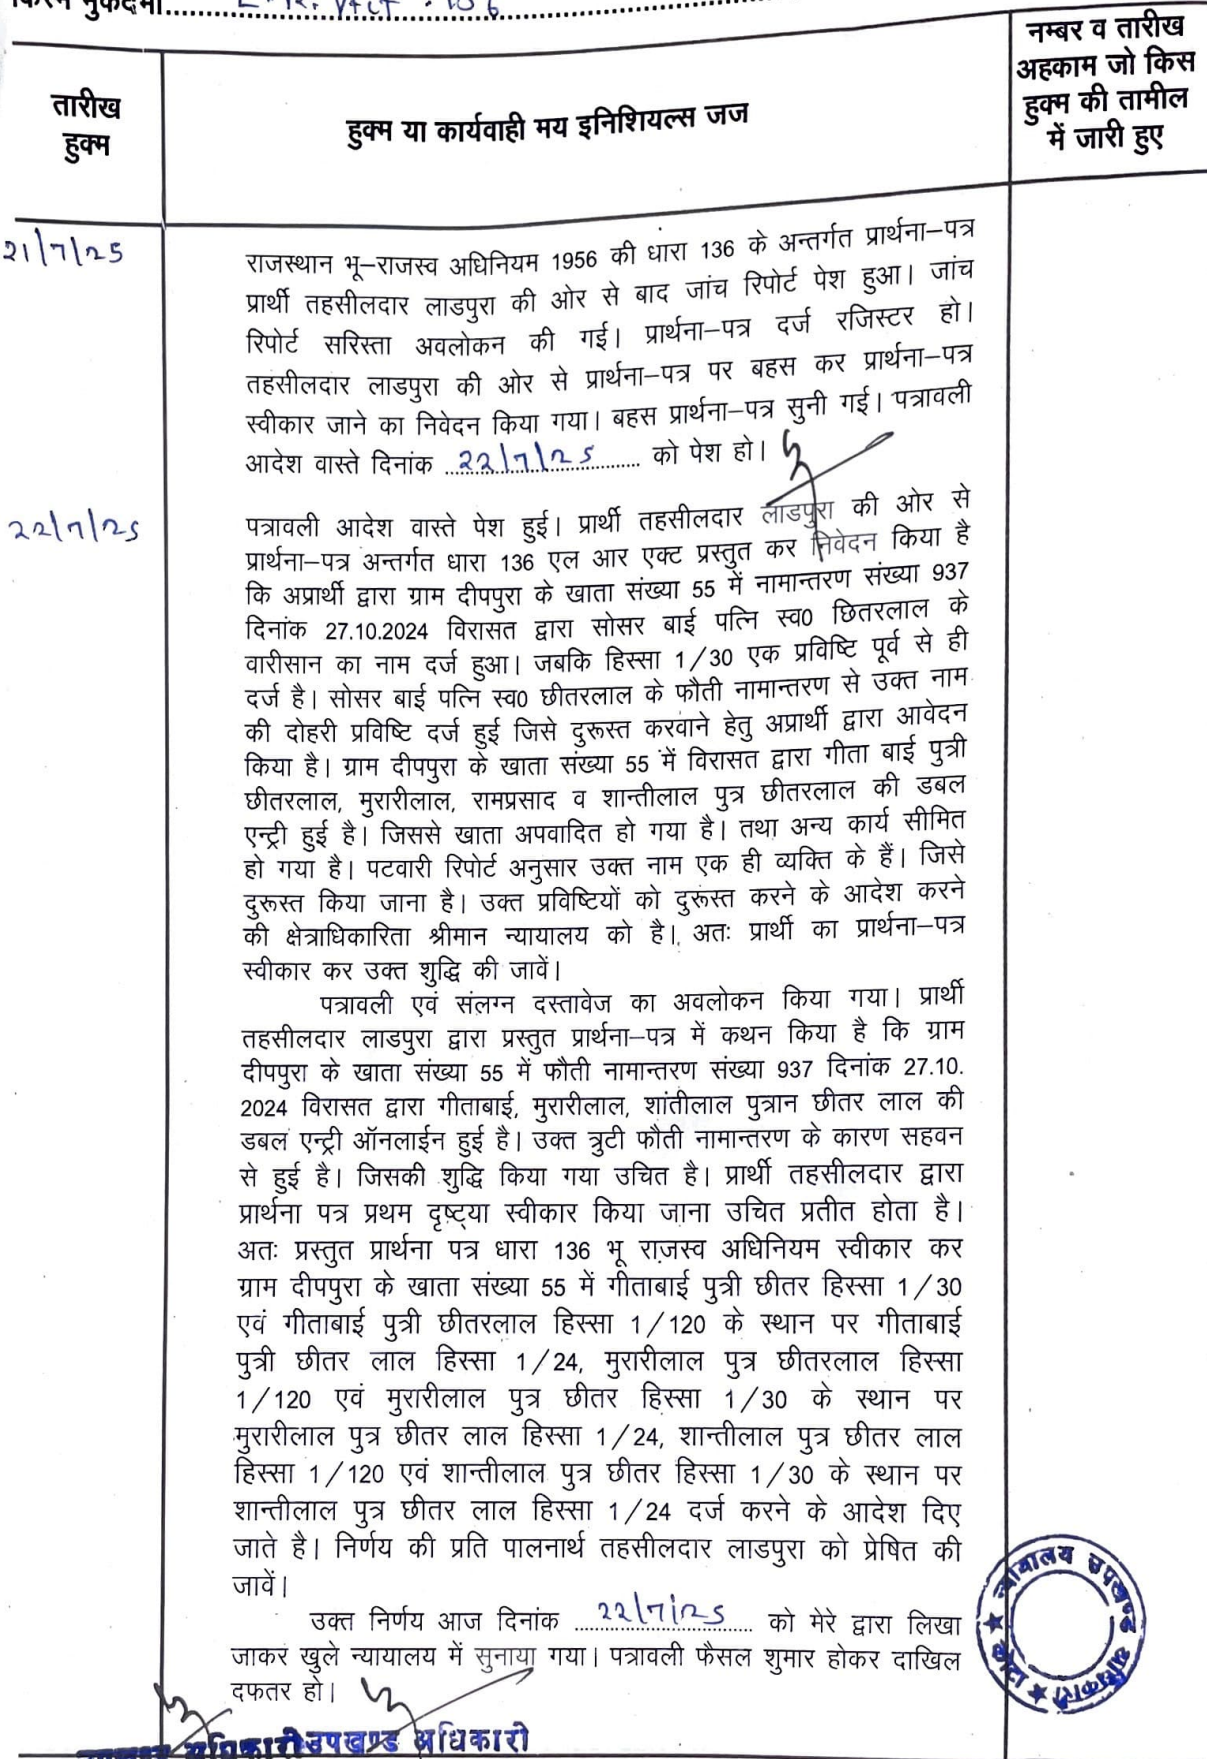 किस्म मुकदमा
नम्बर व तारीख
अहकाम जो किस
हुक्म की तामील
में जारी हुए
तारीख
हुक्म
हुक्म या कार्यवाही मय इनिशियल्स जज
21/7/25
राजस्थान भू–राजस्व अधिनियम 1956 की धारा 136 के अन्तर्गत प्रार्थना–पत्र
प्रार्थी तहसीलदार लाडपुरा की ओर से बाद जांच रिपोर्ट पेश हुआ। जांच
रिपोर्ट सरिस्ता अवलोकन की गई। प्रार्थना–पत्र दर्ज रजिस्टर हो।
तहसीलदार लाडपुरा की ओर से प्रार्थना–पत्र पर बहस कर प्रार्थना–पत्र
स्वीकार जाने का निवेदन किया गया। बहस प्रार्थना–पत्र सुनी गई। पत्रावली
आदेश वास्ते दिनांक 22/7/25 को पेश हो।
22/7/25
पत्रावली आदेश वास्ते पेश हुई। प्रार्थी तहसीलदार लाडपुरा की ओर से
प्रार्थना–पत्र अन्तर्गत धारा 136 एल आर एक्ट प्रस्तुत कर निवेदन किया है
कि अप्रार्थी द्वारा ग्राम दीपपुरा के खाता संख्या 55 में नामान्तरण संख्या 937
दिनांक 27.10.2024 विरासत द्वारा सोसर बाई पत्नि स्व0 छितरलाल के
वारीसान का नाम दर्ज हुआ। जबकि हिस्सा 1/30 एक प्रविष्टि पूर्व से ही
दर्ज है। सोसर बाई पत्नि स्व0 छीतरलाल के फौती नामान्तरण से उक्त नाम
की दोहरी प्रविष्टि दर्ज हुई जिसे दुरूस्त करवाने हेतु अप्रार्थी द्वारा आवेदन
किया है। ग्राम दीपपुरा के खाता संख्या 55 में विरासत द्वारा गीता बाई पुत्री
छीतरलाल, मुरारीलाल, रामप्रसाद व शान्तीलाल पुत्र छीतरलाल की डबल
एन्ट्री हुई है। जिससे खाता अपवादित हो गया है। तथा अन्य कार्य सीमित
हो गया है। पटवारी रिपोर्ट अनुसार उक्त नाम एक ही व्यक्ति के हैं। जिसे
दुरूस्त किया जाना है। उक्त प्रविष्टियों को दुरूस्त करने के आदेश करने
की क्षेत्राधिकारिता श्रीमान न्यायालय को है। अतः प्रार्थी का प्रार्थना–पत्र
स्वीकार कर उक्त शुद्धि की जावें।
पत्रावली एवं संलग्न दस्तावेज का अवलोकन किया गया। प्रार्थी
तहसीलदार लाडपुरा द्वारा प्रस्तुत प्रार्थना–पत्र में कथन किया है कि ग्राम
दीपपुरा के खाता संख्या 55 में फौती नामान्तरण संख्या 937 दिनांक 27.10.
2024 विरासत द्वारा गीताबाई, मुरारीलाल, शांतीलाल पुत्रान छीतर लाल की
डबल एन्ट्री ऑनलाईन हुई है। उक्त त्रुटी फौती नामान्तरण के कारण सहवन
से हुई है। जिसकी शुद्धि किया गया उचित है। प्रार्थी तहसीलदार द्वारा
प्रार्थना पत्र प्रथम दृष्ट्या स्वीकार किया जाना उचित प्रतीत होता है।
अतः प्रस्तुत प्रार्थना पत्र धारा 136 भू राजस्व अधिनियम स्वीकार कर
ग्राम दीपपुरा के खाता संख्या 55 में गीताबाई पुत्री छीतर हिस्सा 1/30
एवं गीताबाई पुत्री छीतरलाल हिस्सा 1/120 के स्थान पर गीताबाई
पुत्री छीतर लाल हिस्सा 1/24, मुरारीलाल पुत्र छीतरलाल हिस्सा
1/120 एवं मुरारीलाल पुत्र छीतर हिस्सा 1/30 के स्थान पर
मुरारीलाल पुत्र छीतर लाल हिस्सा 1/24, शान्तीलाल पुत्र छीतर लाल
हिस्सा 1/120 एवं शान्तीलाल पुत्र छीतर हिस्सा 1/30 के स्थान पर
शान्तीलाल पुत्र छीतर लाल हिस्सा 1/24 दर्ज करने के आदेश दिए
जाते है। निर्णय की प्रति पालनार्थ तहसीलदार लाडपुरा को प्रेषित की
जावें।
उक्त निर्णय आज दिनांक 22/7/25 को मेरे द्वारा लिखा
जाकर खुले न्यायालय में सुनाया गया। पत्रावली फैसल शुमार होकर दाखिल
दफतर हो।
न्यायालय उपखण्ड अधिकारी ★ कोटा ★
उपखण्ड अधिकारी